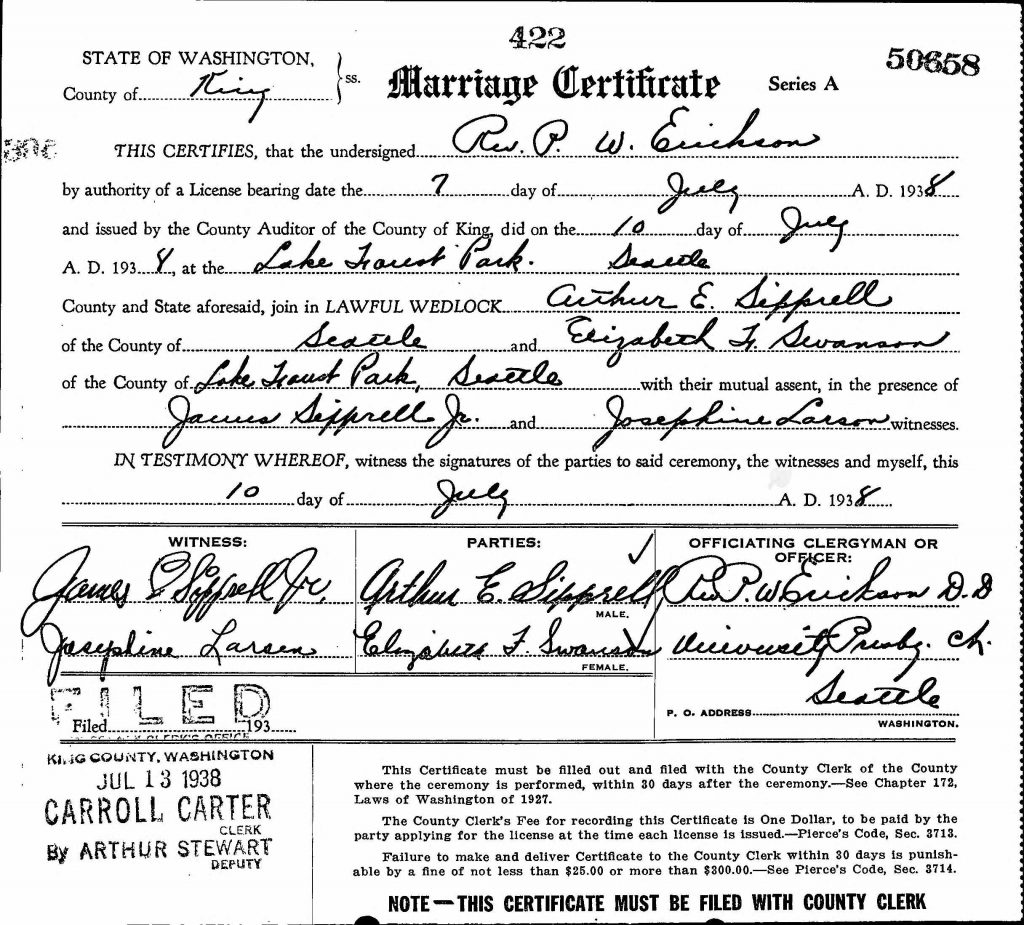 422
50658
STATE OF WASHINGTON,
County of King ss.
Marriage Certificate Series A
THIS CERTIFIES, that the undersigned Rev. P. W. Erickson
by authority of a License bearing date the 7 day of July A. D. 1938
and issued by the County Auditor of the County of King, did on the 10 day of July
A. D. 1938, at the Lake Forest Park. Seattle
County and State aforesaid, join in LAWFUL WEDLOCK Arthur E. Sipprell
of the County of Seattle and Elizabeth F. Swanson
of the County of Lake Forest Park, Seattle with their mutual assent, in the presence of
James Sipprell Jr. and Josephine Larson witnesses.
IN TESTIMONY WHEREOF, witness the signatures of the parties to said ceremony, the witnesses and myself, this
10 day of July A. D. 1938
WITNESS:
James E Sipprell Jr.
Josephine Larsen
PARTIES:
Arthur E. Sipprell
MALE.
Elizabeth F. Swanson
FEMALE.
OFFICIATING CLERGYMAN OR
OFFICER:
Rev P. W Erickson D. D
University Presby. Ch.
Seattle
P. O. ADDRESS
WASHINGTON.
FILED
Filed 193
CLERK'S OFFICE
KING COUNTY, WASHINGTON
JUL 13 1938
CARROLL CARTER
CLERK
By ARTHUR STEWART
DEPUTY
This Certificate must be filled out and filed with the County Clerk of the County
where the ceremony is performed, within 30 days after the ceremony.—See Chapter 172,
Laws of Washington of 1927.
The County Clerk's Fee for recording this Certificate is One Dollar, to be paid by the
party applying for the license at the time each license is issued.—Pierce's Code, Sec. 3713.
Failure to make and deliver Certificate to the County Clerk within 30 days is punish-
able by a fine of not less than $25.00 or more than $300.00.—See Pierce's Code, Sec. 3714.
NOTE—THIS CERTIFICATE MUST BE FILED WITH COUNTY CLERK